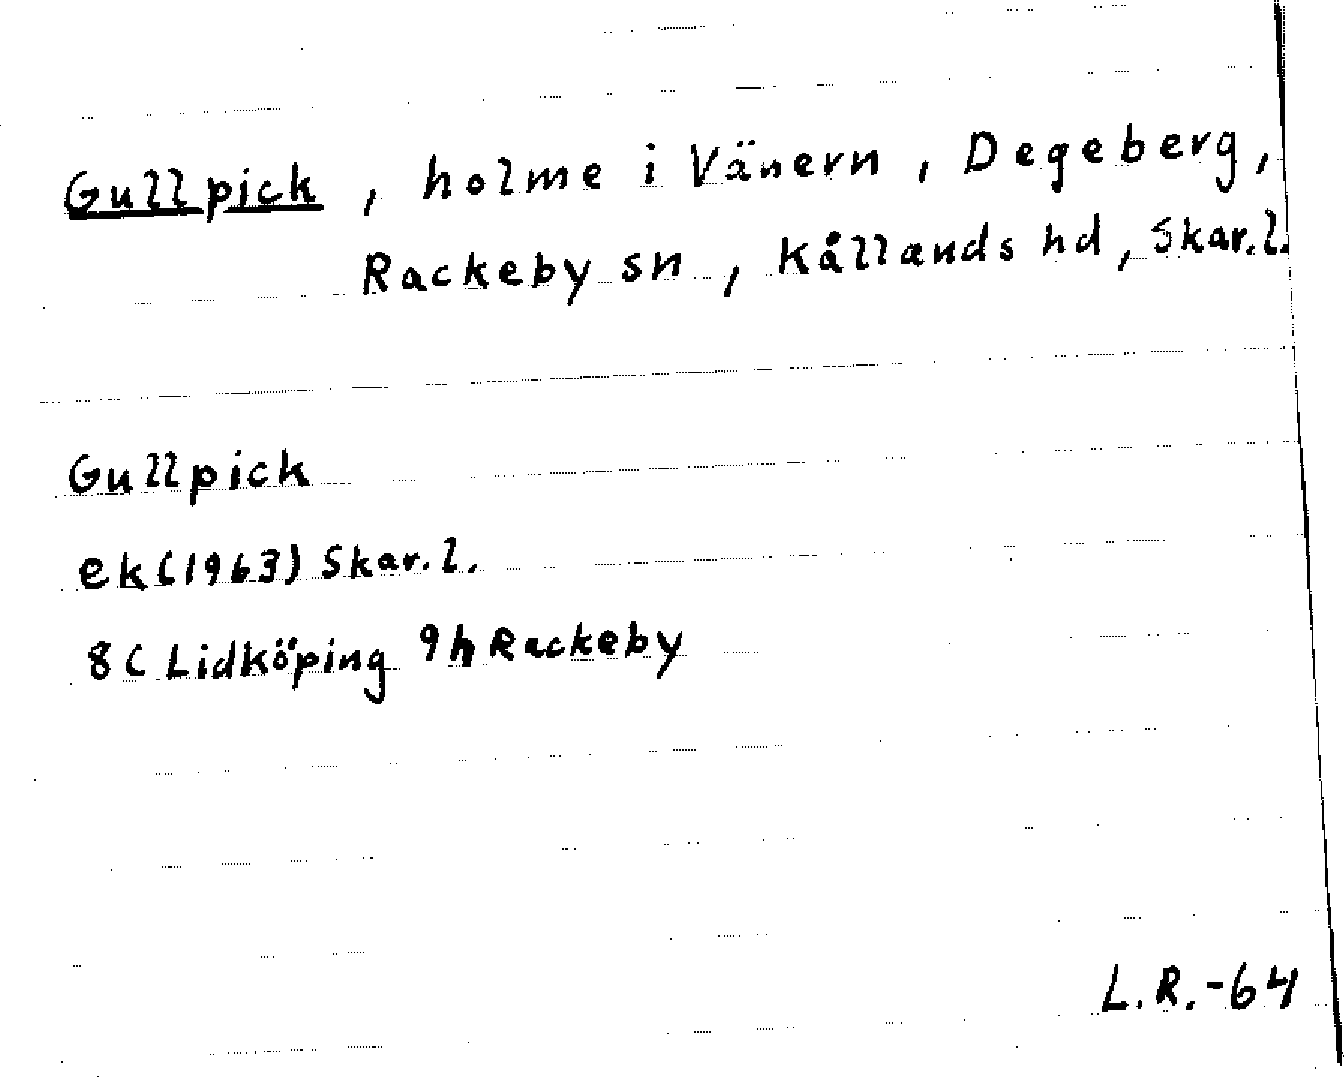 Gullpick, holme i Vänern, Degeberg,
Rackeby sn, Kållands hd, Skar.l.
Gullpick
ek(1963) Skar.l.
8C Lidköping 9h Rackeby
L.R.-64